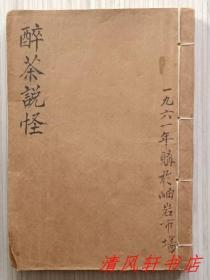 醉茶說怪
一九六一年購於岫岩市場
清风轩书店